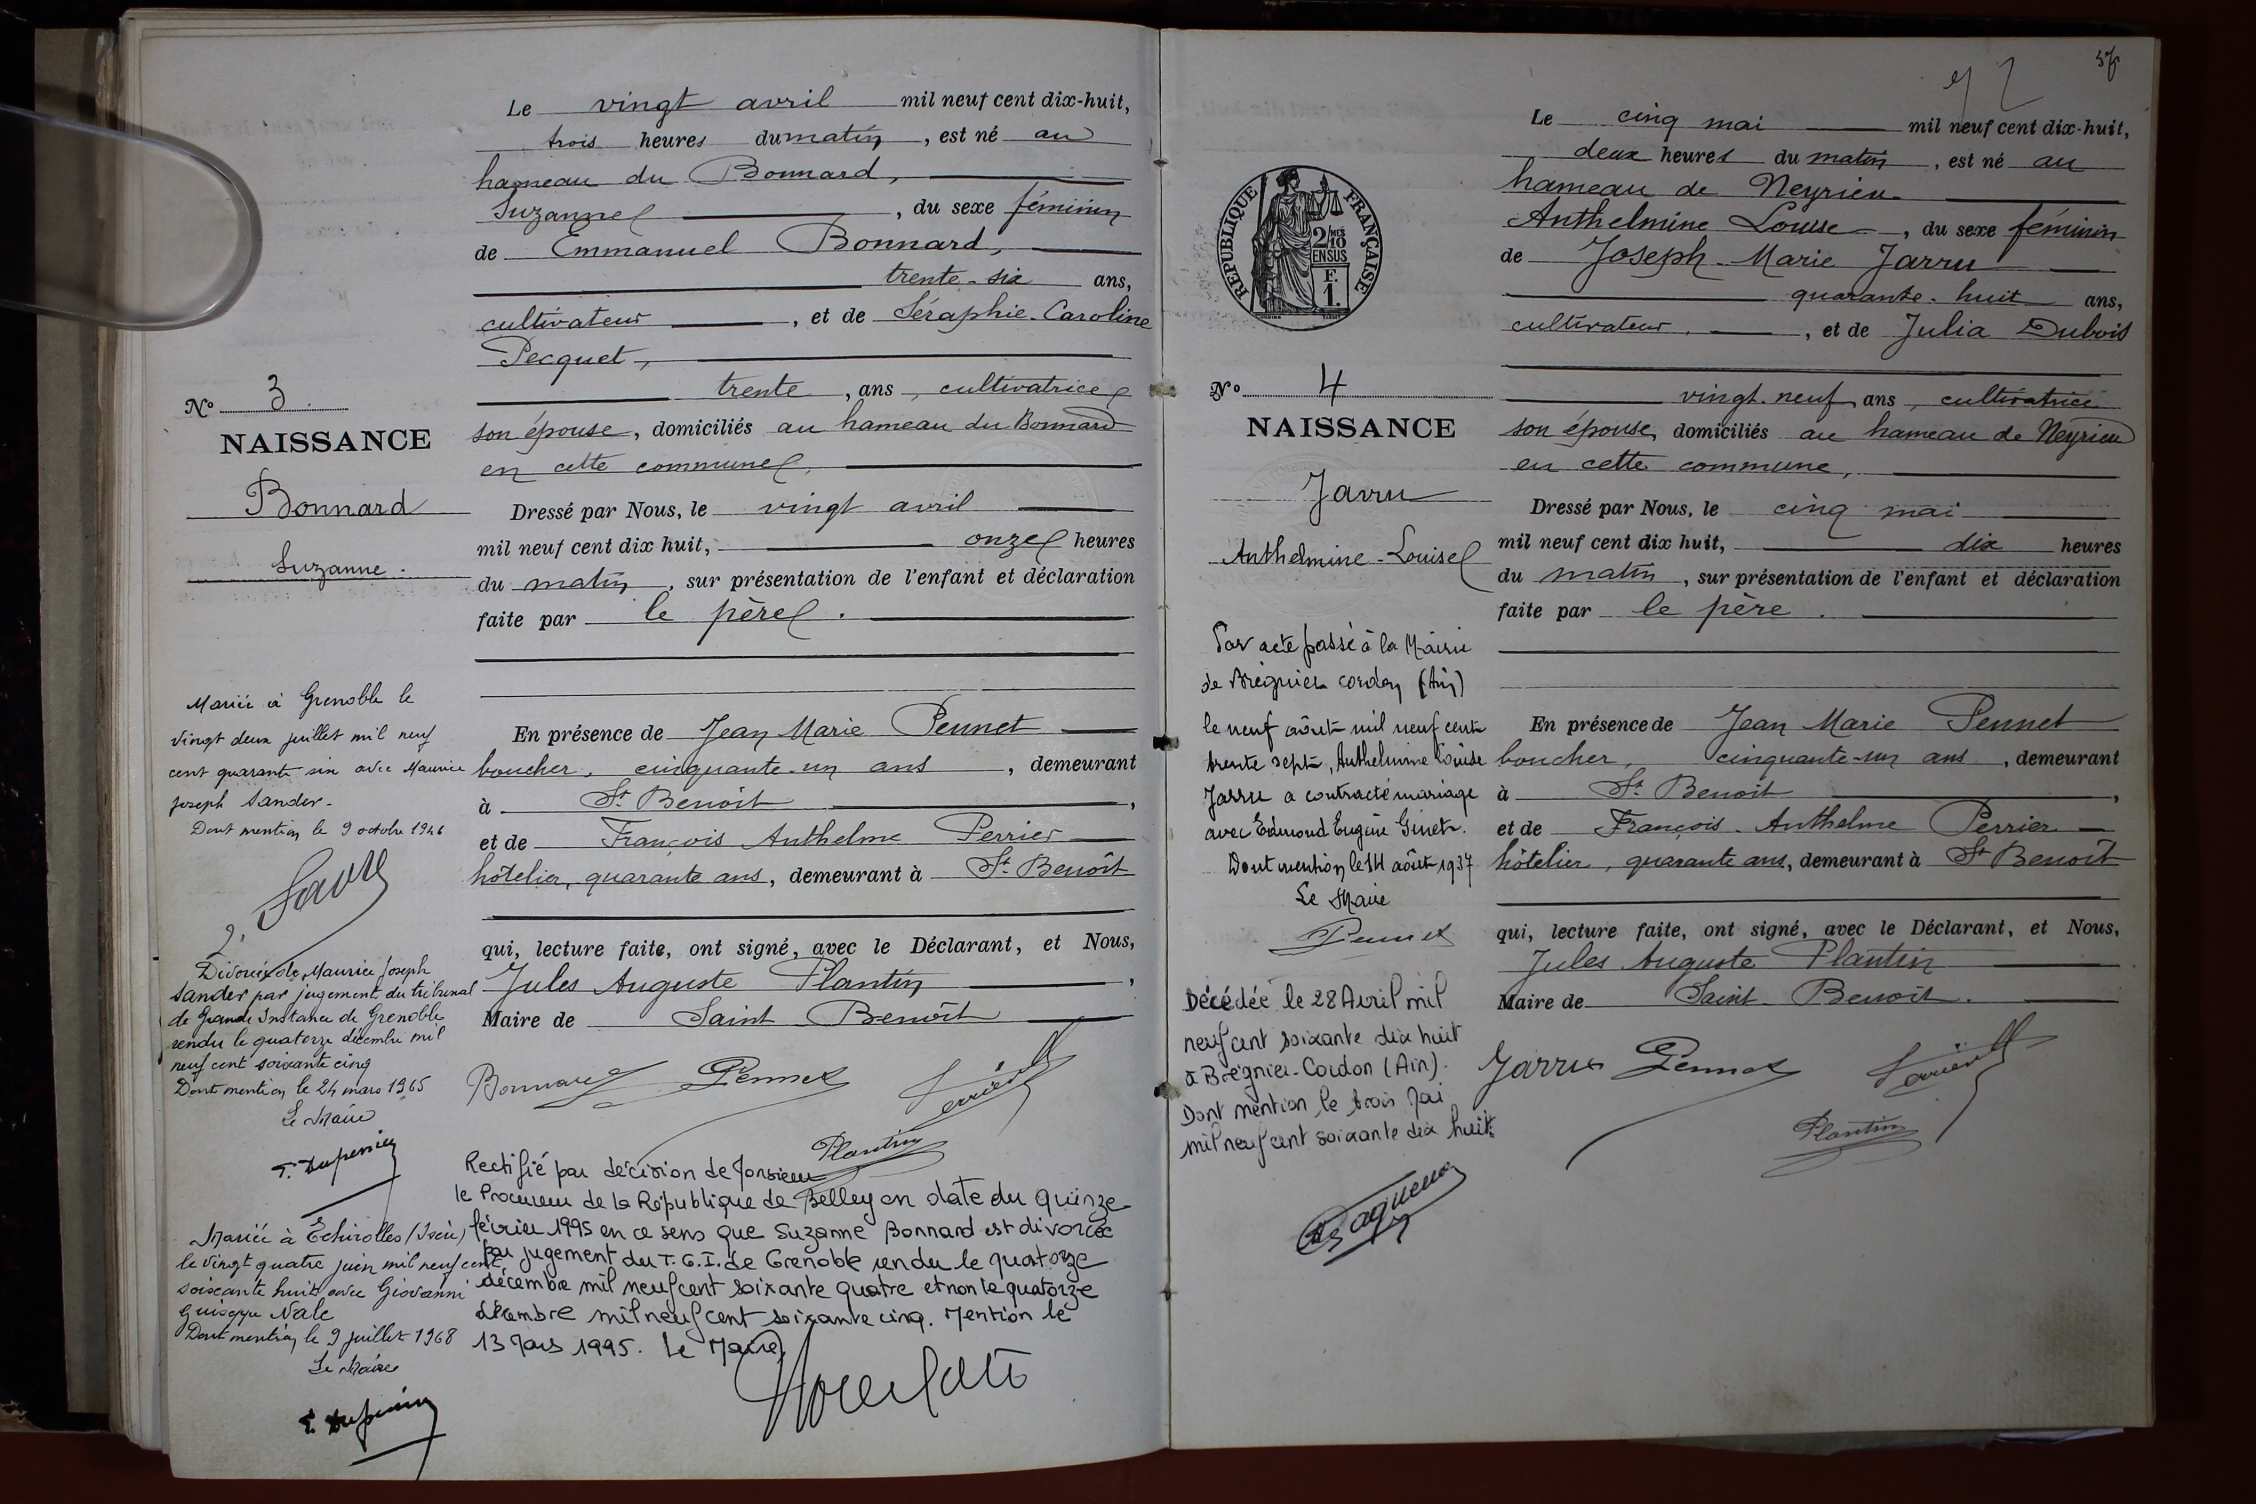 Le vingt avril mil neuf cent dix-huit,
trois heures du matin, est né au
hameau du Bonnard,
Suzanne, du sexe féminin
de Emmanuel Bonnard,
trente-six ans,
cultivateur, et de Séraphie-Caroline
Pecquet,
trente, ans, cultivatrice
son épouse, domiciliés au hameau du Bonnard
en cette commune.
Dressé par Nous, le vingt avril
mil neuf cent dix huit, onze heures
du matin, sur présentation de l'enfant et déclaration
faite par le père.
En présence de Jean Marie Pennet
boucher, cinquante-un ans, demeurant
à St Benoît,
et de François Anthelme Perrier
hôtelier, quarante ans, demeurant à St Benoît
qui, lecture faite, ont signé, avec le Déclarant, et Nous,
Jules Auguste Plantin,
Maire de Saint Benoît
Bonnard Pennet Perrier
Plantin
Rectifié par décision de Monsieur
le Procureur de la République de Belley en date du quinze
février 1995 en ce sens que Suzanne Bonnard est divorcée
par jugement du T.G.I. de Grenoble rendu le quatorze
décembre mil neuf cent soixante quatre et non le quatorze
décembre mil neuf cent soixante cinq. Mention le
13 Mars 1995. Le Maire,
No 3.
NAISSANCE
Bonnard
Suzanne.
Mariée à Grenoble le
vingt deux juillet mil neuf
cent quarante six avec Maurice
Joseph Sander.
Dont mention le 9 octobre 1946
2.
Divorcée de Maurice Joseph
Sander par jugement du tribunal
de Grande Instance de Grenoble
rendu le quatorze décembre mil
neuf cent soixante cinq
Dont mention le 24 mars 1965
Le Maire
Mariée à Echirolles (Isère)
le vingt quatre juin mil neuf cent
soixante huit avec Giovanni
Guiseppe Nale
Dont mention le 9 juillet 1968
Le Maire
57
Le cinq mai mil neuf cent dix-huit,
deux heures du matin, est né au
hameau de Neyrieu
Anthelmine Louise, du sexe féminin
de Joseph-Marie Jarru
quarante-huit ans,
cultivateur, et de Julia Dubois
vingt-neuf, ans, cultivatrice
son épouse, domiciliés au hameau de Neyrieu
en cette commune,
Dressé par Nous, le cinq mai
mil neuf cent dix huit, dix heures
du matin, sur présentation de l'enfant et déclaration
faite par le père.
En présence de Jean Marie Pennet
boucher, cinquante-un ans, demeurant
à St Benoît,
et de François-Anthelme Perrier
hôtelier, quarante ans, demeurant à St Benoît
qui, lecture faite, ont signé, avec le Déclarant, et Nous,
Jules Auguste Plantin
Maire de Saint-Benoît.
Jarru Pennet Perrier
Plantin
REPUBLIQUE FRANÇAISE
2/10MES
EN SUS
F.
1.
No 4
NAISSANCE
Jarru
Anthelmine-Louise
Par acte passé à la Mairie
de Brégnier Cordon (Ain)
le neuf août mil neuf cent
trente sept, Anthelmine Louise
Jarru a contracté mariage
avec Edmond Eugène Ginet.
Dont mention le 14 août 1937
Le Maire
Pennet
Décédée le 28 Avril mil
neuf cent soixante dix huit
à Brégnier-Cordon (Ain).
Dont mention le trois Mai
mil neuf cent soixante dix huit